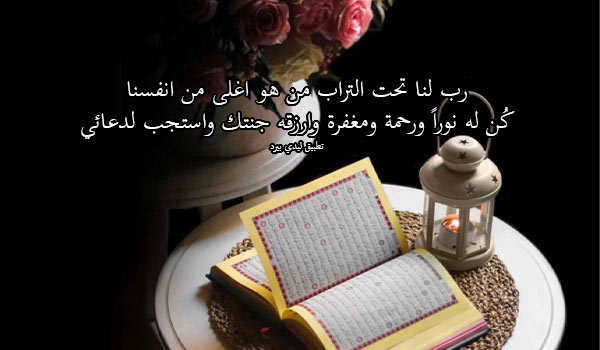 رب لنا تحت التراب من هو اغلى من انفسنا
كُن له نوراً ورحمة ومغفرة وارزقه جنتك واستجب لدعائي
تطبيق ليدي بيرد